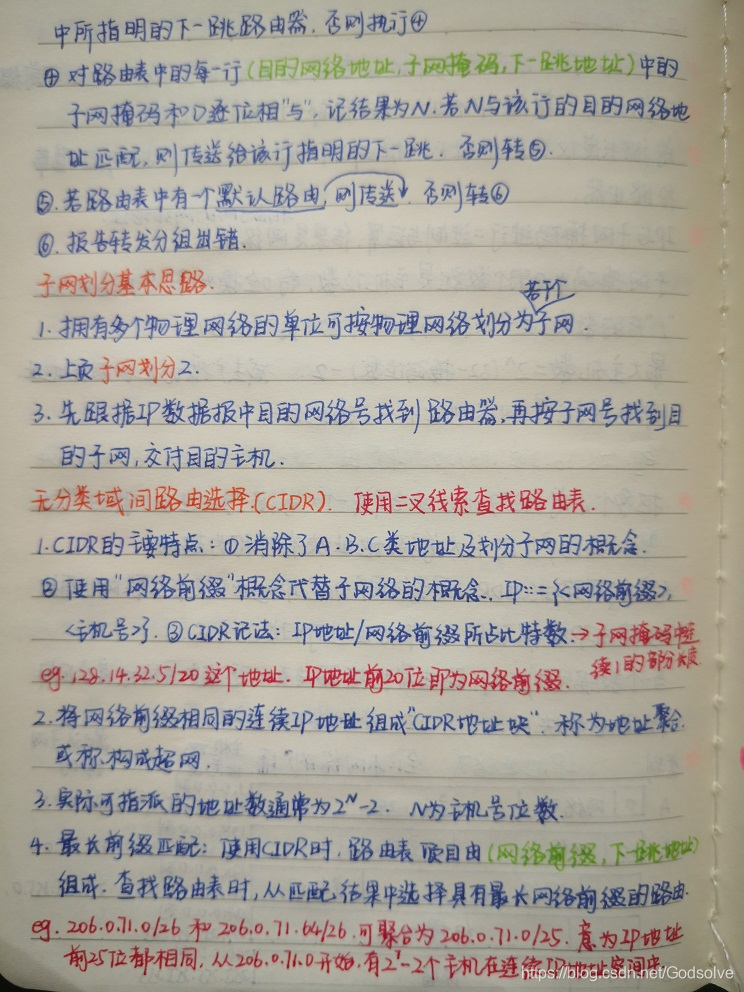 中所指明的下一跳路由器,否则执行④
④ 对路由表中的每一行(目的网络地址,子网掩码,下一跳地址)中的
子网掩码和D逐位相"与",记结果为N.若N与该行的目的网络地
址匹配,则传送给该行指明的下一跳. 否则转⑤.
⑤.若路由表中有一个默认路由,则传送. 否则转⑥
⑥. 报告转发分组出错.
子网划分基本思路.
若干个
1. 拥有多个物理网络的单位可按物理网络划分为子网.
2. 上页子网划分2.
3. 先跟据IP数据报中目的网络号找到路由器,再按子网号找到目
的子网,交付目的主机.
无分类域间路由选择.(CIDR). 使用二叉线索查找路由表.
1.CIDR的主要特点: ① 消除了A.B.C类地址及划分子网的概念.
② 使用"网络前缀"概念代替子网络的概念. IP::={<网络前缀>,
<主机号>}. ③ CIDR记法: IP地址/网络前缀所占比特数.→子网掩码中连
续1的部分长度
eg.128.14.32.5/20 这个地址. IP地址前20位即为网络前缀.
2. 将网络前缀相同的连续IP地址组成"CIDR地址块". 称为地址聚合.
或称构成超网.
3.实际可指派的地址数通常为2ᴺ-2. N为主机号位数.
4. 最长前缀匹配: 使用CIDR时,路由表项目由(网络前缀,下一跳地址)
组成. 查找路由表时,从匹配结果中选择具有最长网络前缀的路由.
eg. 206.0.71.0/26 和 206.0.71.64/26.可聚合为206.0.71.0/25. 意为IP地址
前25位都相同,从206.0.71.0开始.有2⁷-2个主机在连续IP地址空间中
https://blog.csdn.net/Godsolve